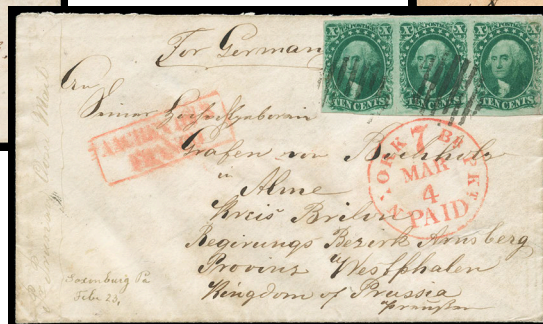 For German
X X X X X X
TEN CENTS TEN CENTS TEN CENTS
An
Seiner Hochwohlgeboren
Grafen von Bocholtz
in
Alme
Kreis Brilon
Regirungs Bezirk Arnsberg
Provinz Westphalen
Kingdom of Prussia
Preußen
YORK 7 Br PKT
MAR
4
PAID
AACHEN
Pa
Feb. 23,